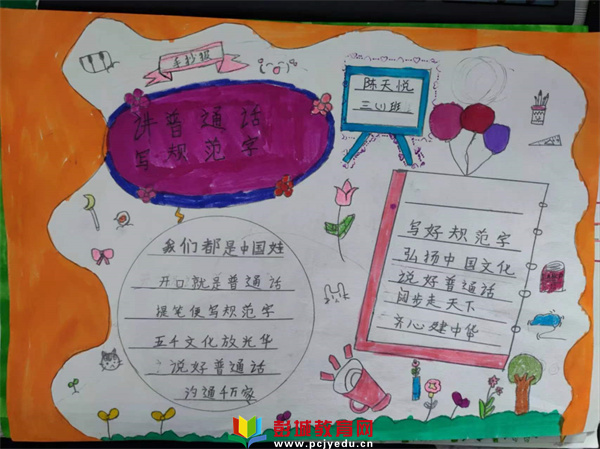 手抄报
讲普通话
写规范字
陈天悦
三(1)班
我们都是中国娃
开口就是普通话
提笔便写规范字
五千文化放光华
说好普通话
沟通千万家
写好规范字
弘扬中国文化
说好普通话
阔步走天下
齐心建中华
彭城教育网
www.pcjyedu.cn